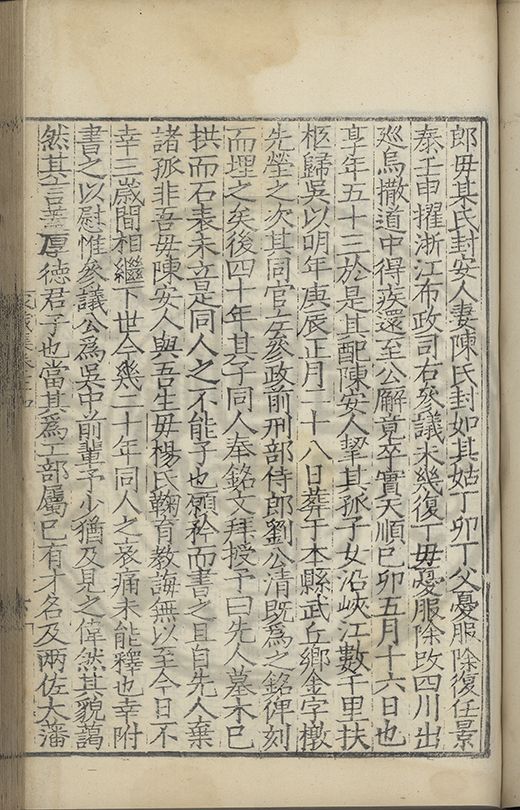 郎毋某氏封安人妻陳氏封如其姑丁卯丁父憂服除復任景
泰壬申擢浙江布政司右參議未幾復丁毋憂服除改四川出
廵烏撒道中得疾還至公廨竟卒實天順巳卯五月十六日也
享年五十三於是其配陳安人挈其孤子女沿峽江數千里扶
柩歸吳以明年庚辰正月二十八日葬于本縣武丘鄉金字橔
先塋之次其同官左參政前刑部侍郎劉公清既為之銘俾刻
而埋之矣後四十年其子同人奉銘文拜授予曰先人墓木巳
拱而石表未立是同人之不能子也願矜而書之且自先人棄
諸孤非吾毋陳安人與吾生毋楊氏鞠育教誨無以至今日不
幸三歲間相繼下世今幾二十年同人之哀痛未能釋也幸附
書之以慰惟參議公為吳中前輩予少猶及見之偉然其貌藹
然其言蓋厚德君子也當其為工部屬巳有才名及兩佐大藩